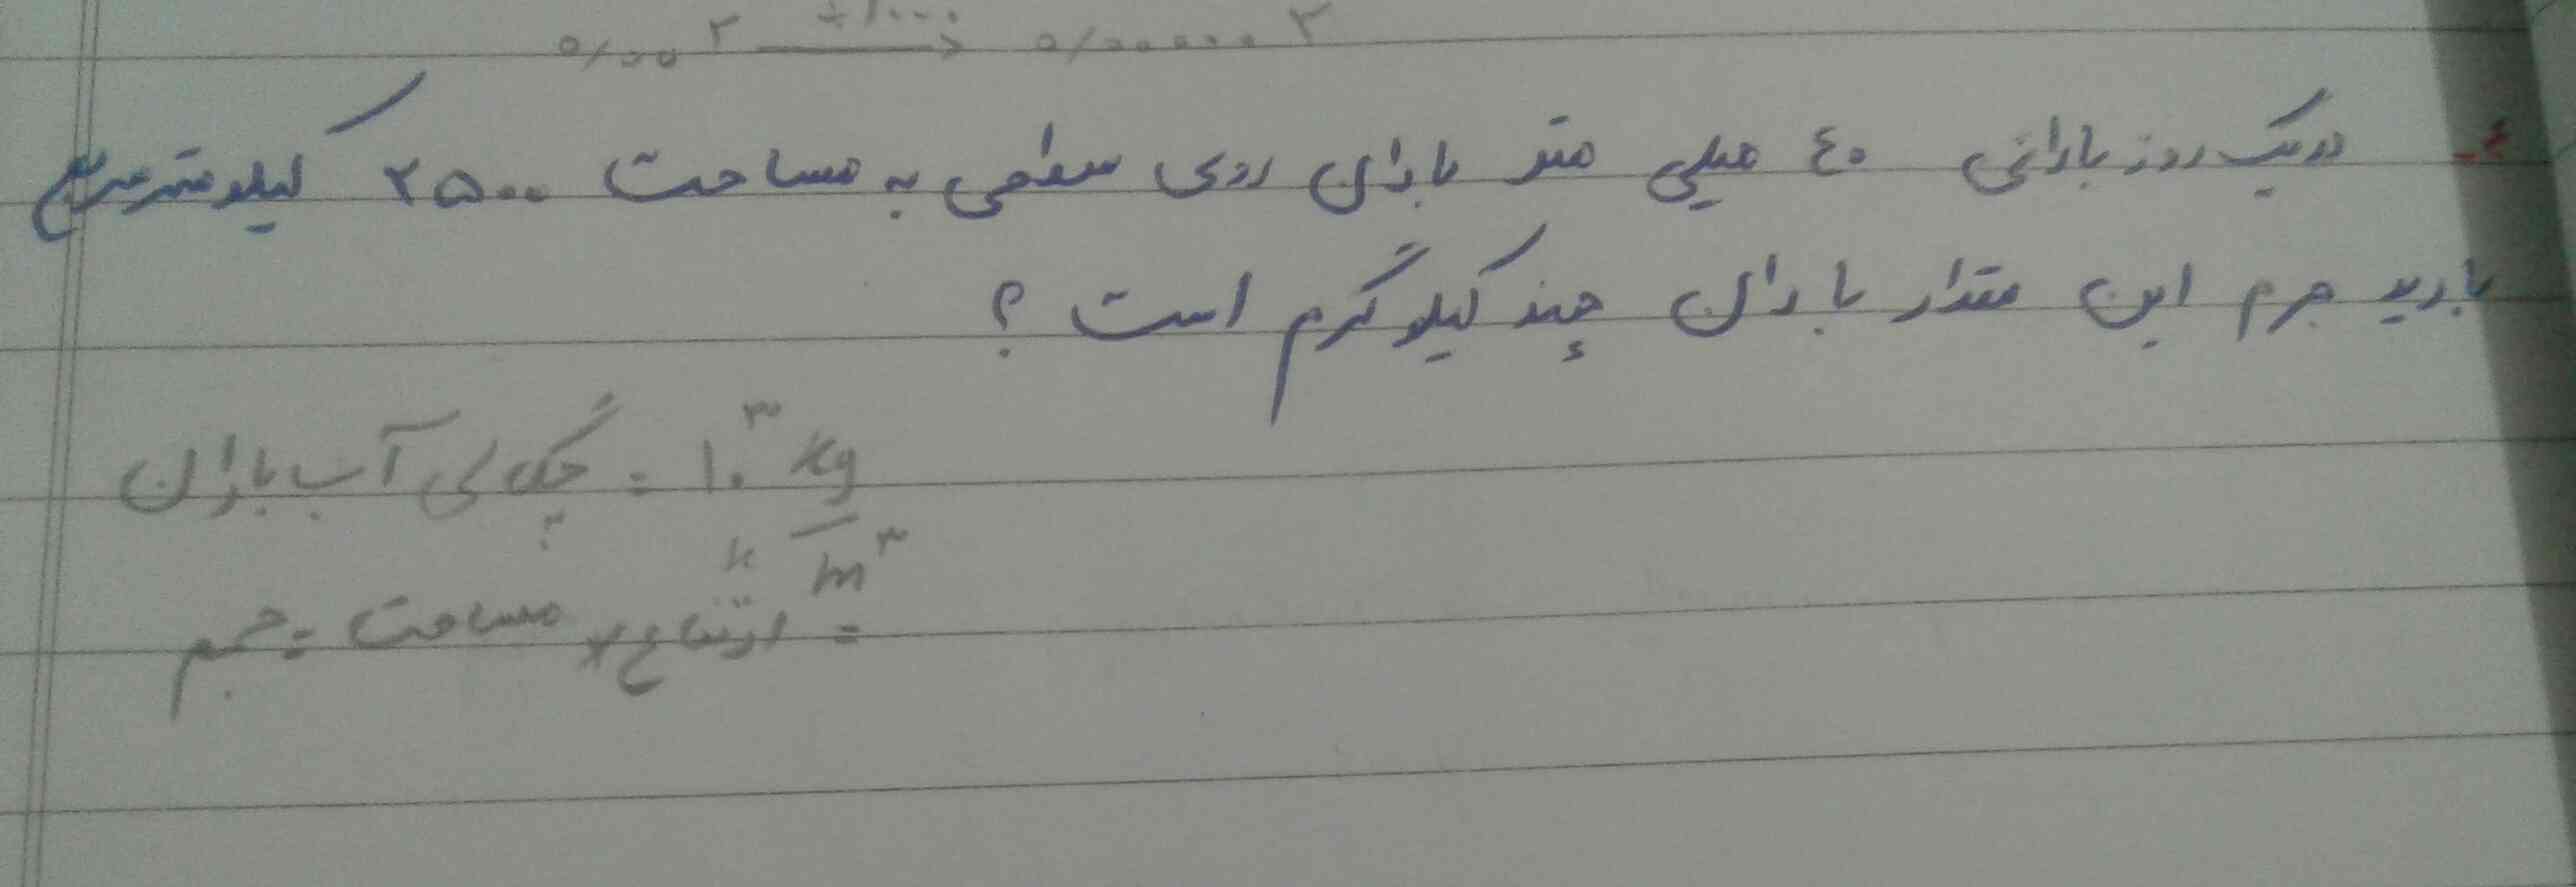 ۰/۰۰۲ ÷۱۰۰۰ → ۰/۰۰۰۰۰۲
۴- در یک روز بارانی ۴۰ میلی متر باران روی سطحی به مساحت ۲۵۰۰ کیلومترمربع
بارید جرم این مقدار باران چند کیلوگرم است ؟
چگالی آب باران = ۱۰³ kg/m³
حجم = مساحت × ارتفاع =